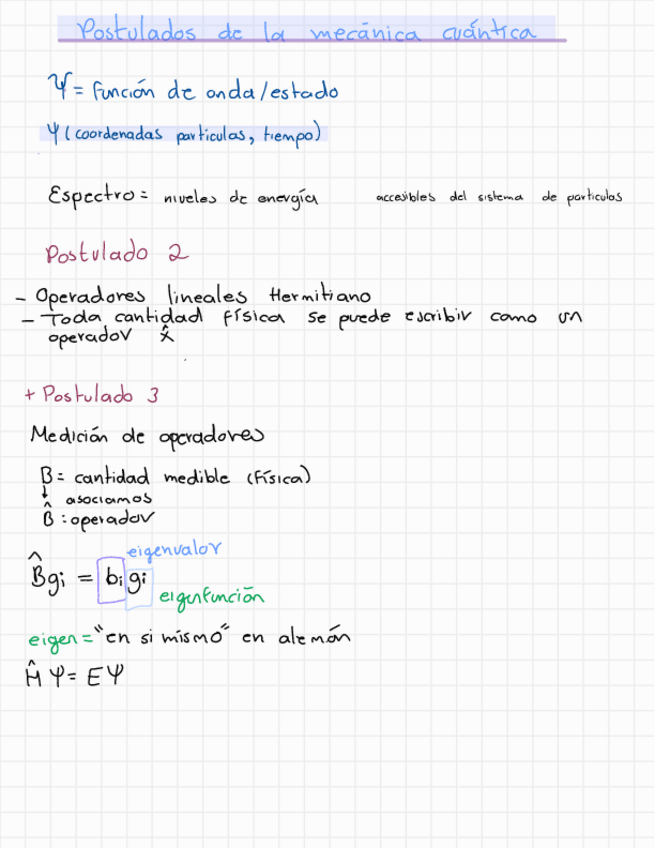 Postulados de la mecánica cuántica
Ψ = función de onda/estado
Ψ (coordenadas particulas, tiempo)
Espectro = niveles de energía accesibles del sistema de particulas
Postulado 2
- Operadores lineales Hermitiano
- Toda cantidad física se puede escribir como un
operador x̂
+ Postulado 3
Medición de operadores
B = cantidad medible (física)
↓ asociamos
B̂ : operador
eigenvalor
B̂gi = bigi
eigenfunción
eigen = "en si mismo" en alemán
Ĥ Ψ = E Ψ